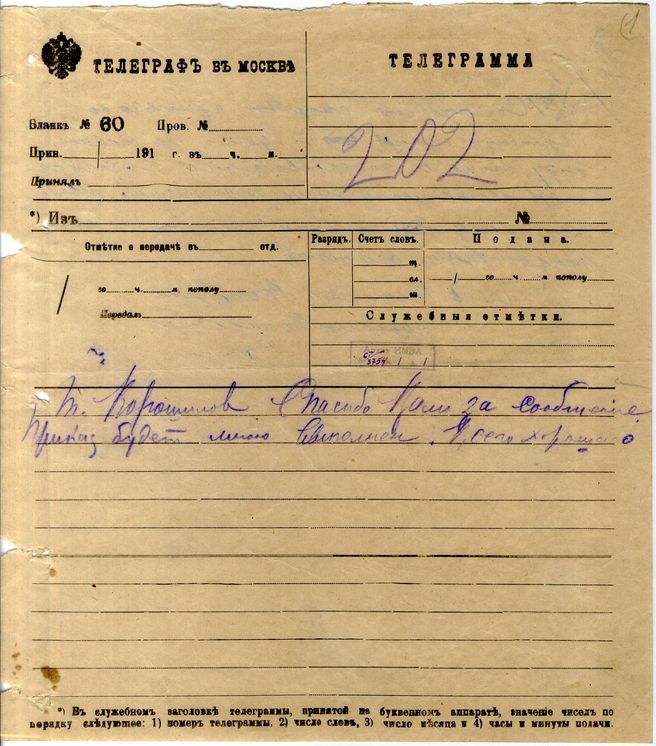 ТЕЛЕГРАФЪ ВЪ МОСКВѢ
ТЕЛЕГРАММА
Бланкъ № 60 Пров. №
Прин. / 191 г. въ ч. м.
Принялъ
202
*) Изъ №
Отмѣтка о передачѣ въ отд.
Разрядъ. Счетъ словъ. Подана.
т.
/ го ч. м. пополу
сл.
/ го ч. м. пополу
ш.
Передалъ
Служебныя отмѣтки.
3754
т. Ворошилов Спасибо Вам за сообщение
Приказ будет мною выполнен. Всего хорошаго
*) Въ служебномъ заголовкѣ телеграммы, принятой на буквенномъ аппаратѣ, значеніе чиселъ по
порядку слѣдующее: 1) номеръ телеграммы. 2) число словъ, 3) число мѣсяца и 4) часы и минуты подачи.